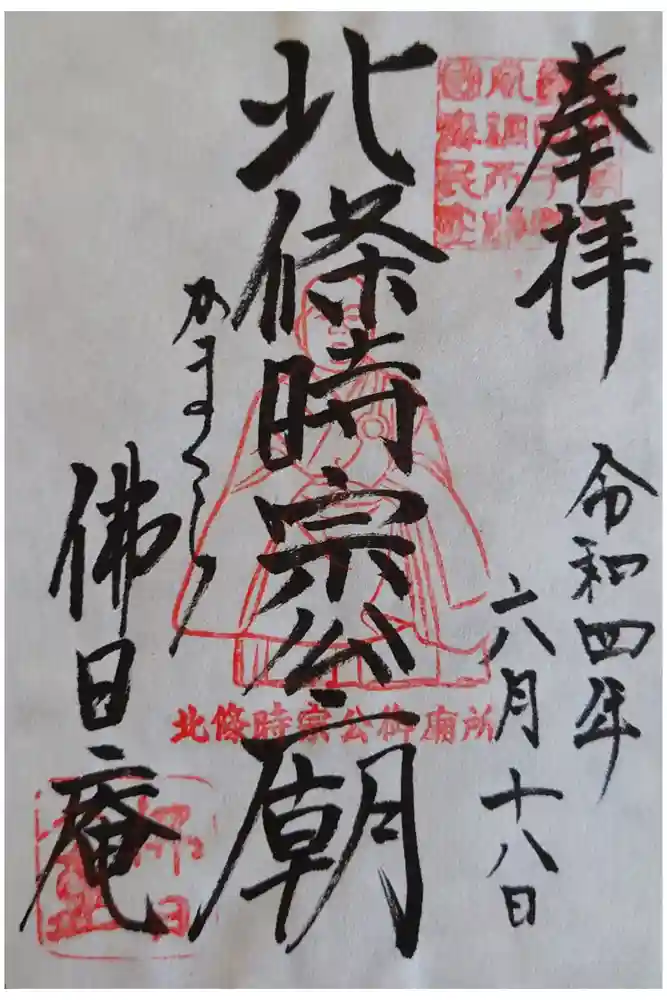 奉拝
令和四年
六月十八日
北條時宗公廟
北條時宗公御廟所
かまくら
佛日庵